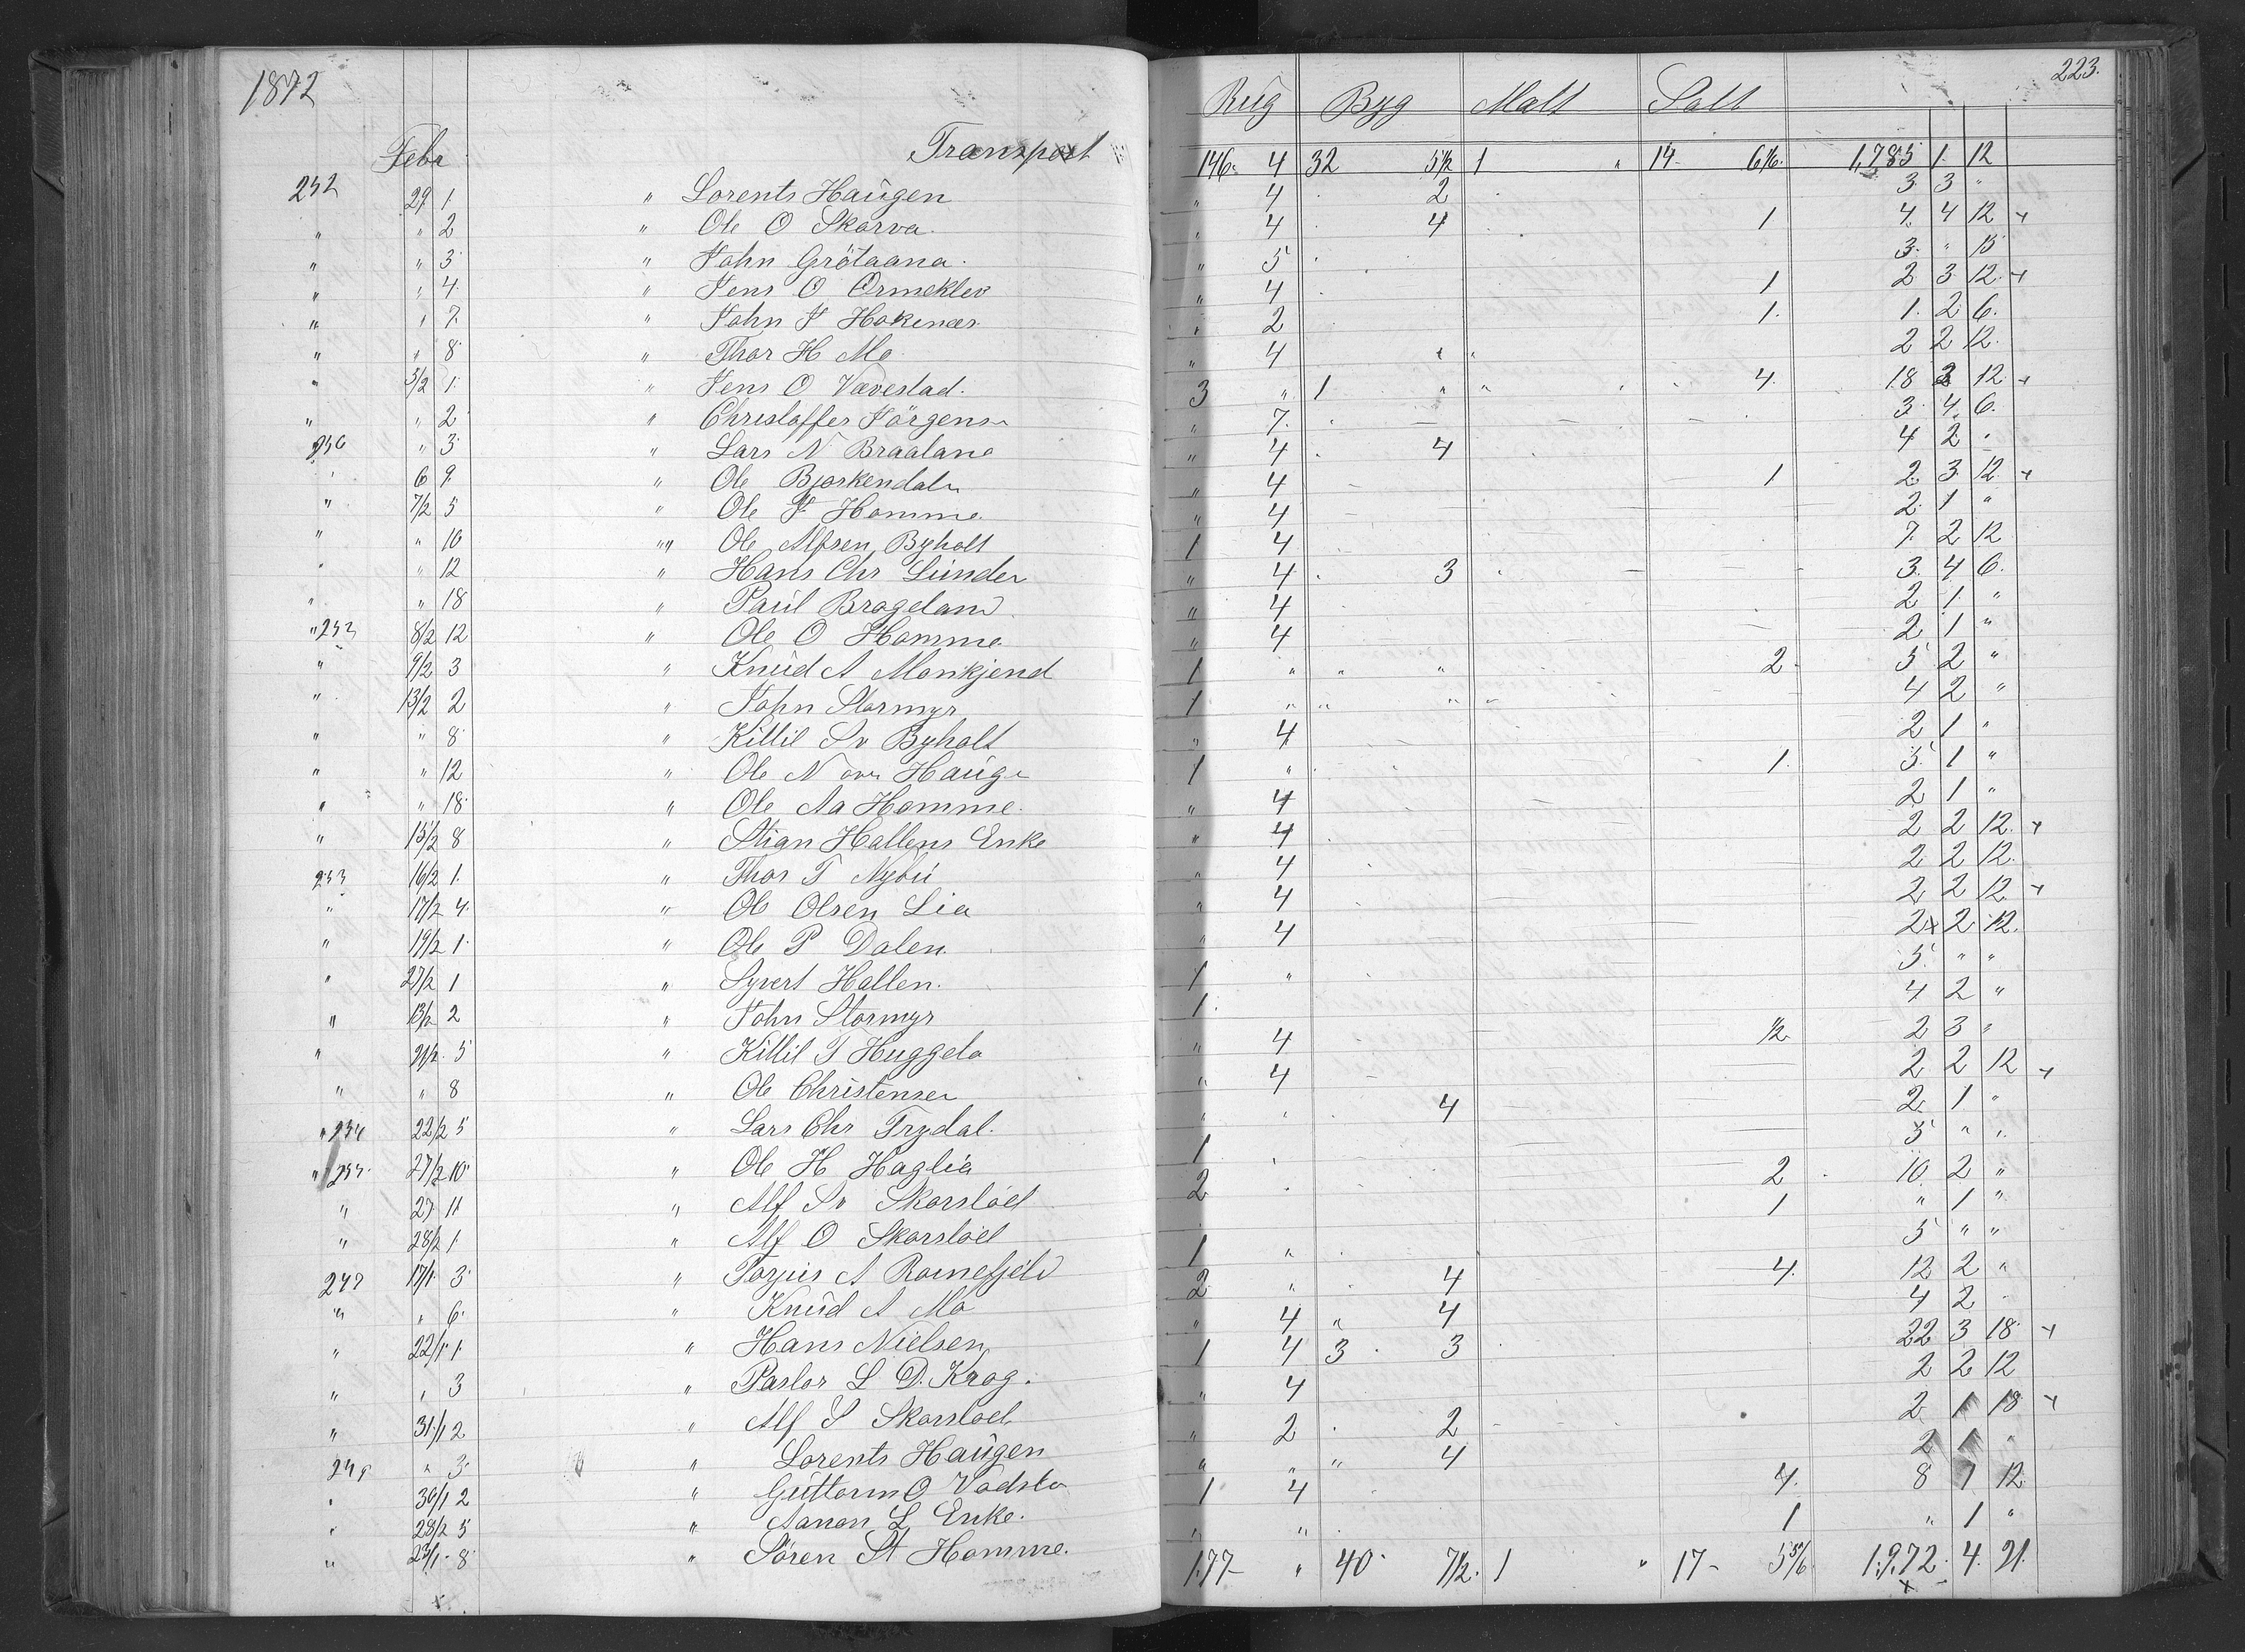 1872
223.
Rug Byg Malt Salt
Febr Transport 146. 4 32 5½ 1 " 14 6⅚. 1,785 1. 12
252 29 1. " Lorents Haugen " 4 . 2 3. 3 "
" " 2 " Ole O Skarva. " 4 . 4 1 4. 4 12
" " 3 " John Grötaana. " 5 . 3. " 15
" " 4. " Jens O Ormeklev " 4 . 1 2 3. 12.
" " 7. " John J Hokenæs " 2 1. 1. 2 6.
" " 8 " Thor H Mo " 4 2 2 12.
" 5/2 1. " Jens O Vævestad. 3 " 1 " " 4. 18 3 12.
" " 2 " Christoffer Jörgensn " 7. . 3. 4. 6.
256 " 3. " Lars N Braalane " 4 . 4 4 2 .
" 6 9. " Ole Bjørkendaln " 4 1 2. 3. 12
" 7/2 5 " Ole F Homme. " 4 2. 1 "
" " 10 "" Ole Alfsen Byholt 1 4 7. 2 12
" " 12 " Hans Chr Lunden " 4 . 3 3. 4 6.
" " 18 " Paul Brageland " 4 2 1. "
" 253 8/2 12 " Ole O Homme. " 4 2. 1 "
" 9/2 3 " Knud A Monkjend 1 " " " 2. 5 2 "
" 13/2 2 " John Stormyr 1 " " " " 4 2 "
" " 8. " Kittil Sv Byholt " 4 2 1 "
" " 12 " Ole N ovn Haugn 1 " 1. 5. 1 "
" " 18. " Ole Aa Homme. " 4 2 1 "
" 15/2 8 " Stian Hallens Enke " 4 . 2 2 12.
253 16/2 1. " Thor T Nybú " 4 2 2 12.
" 17/2 4. " Ole Olsen Lia " 4 2 2 12
" 19/2 1. " Ole P Dalen. " 4 2 2 12.
" 27/2 1 " Syvert Hallen. 1 " 5. " "
" 13/2 2 " John Stormyr 1. 4 2 "
" 21/2. 5 " Kittil T Huggela " 4 ½ 2 3 "
" " 8 " Ole Christensen " 4 2 2 12
" 254 22/2 5 " Lars Chr Trydal. " " 4 2. 1 "
" 255. 27/2 10. " Ole H Haglia 1 5 " "
" 27 11 " Alf Sv Skarsloel 2 . 2 10 2 "
" 28/2 1. " Alf O Skarsloel 1 " 1 "
247 17/1. 3. " Torjus A Romefjeld 1 " 5 " "
" " 6. " Knud A Mo 2. " 4 4. 12 2 "
" 22/1. 1. " Hans Nielsen " 4 " 4 4 2
" " 3 " Pastor L D. Krog. 1 4 3 . 3 22 3 18.
" 31/1 2 " Alf S Skarsloel " 4 2 2 12
249 " 3. " Lorents Haugen " 2 . 2 2 1 18
" 30/1 2 " Guttorm O Vodsla " " " 4 2 1 "
" 28/2 5 " Aanon L Enke. 1 4 4. 8 1 12
" 23/1. 8. " Sören St Homme. " " 1 " 1 "
177 " 40. 7½. 1 " 17 5⅚ 1,972. 4. 21.